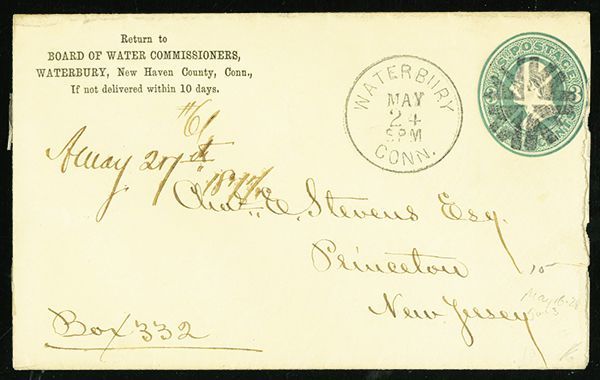 Return to
BOARD OF WATER COMMISSIONERS,
WATERBURY, New Haven County, Conn.,
If not delivered within 10 days.
WATERBURY
MAY
24
5PM
CONN.
U.S. POSTAGE
#61
May 27th
1877
Chas. E. Stevens Esq.
Princeton
New Jersey
Box 332
15
May 16-28